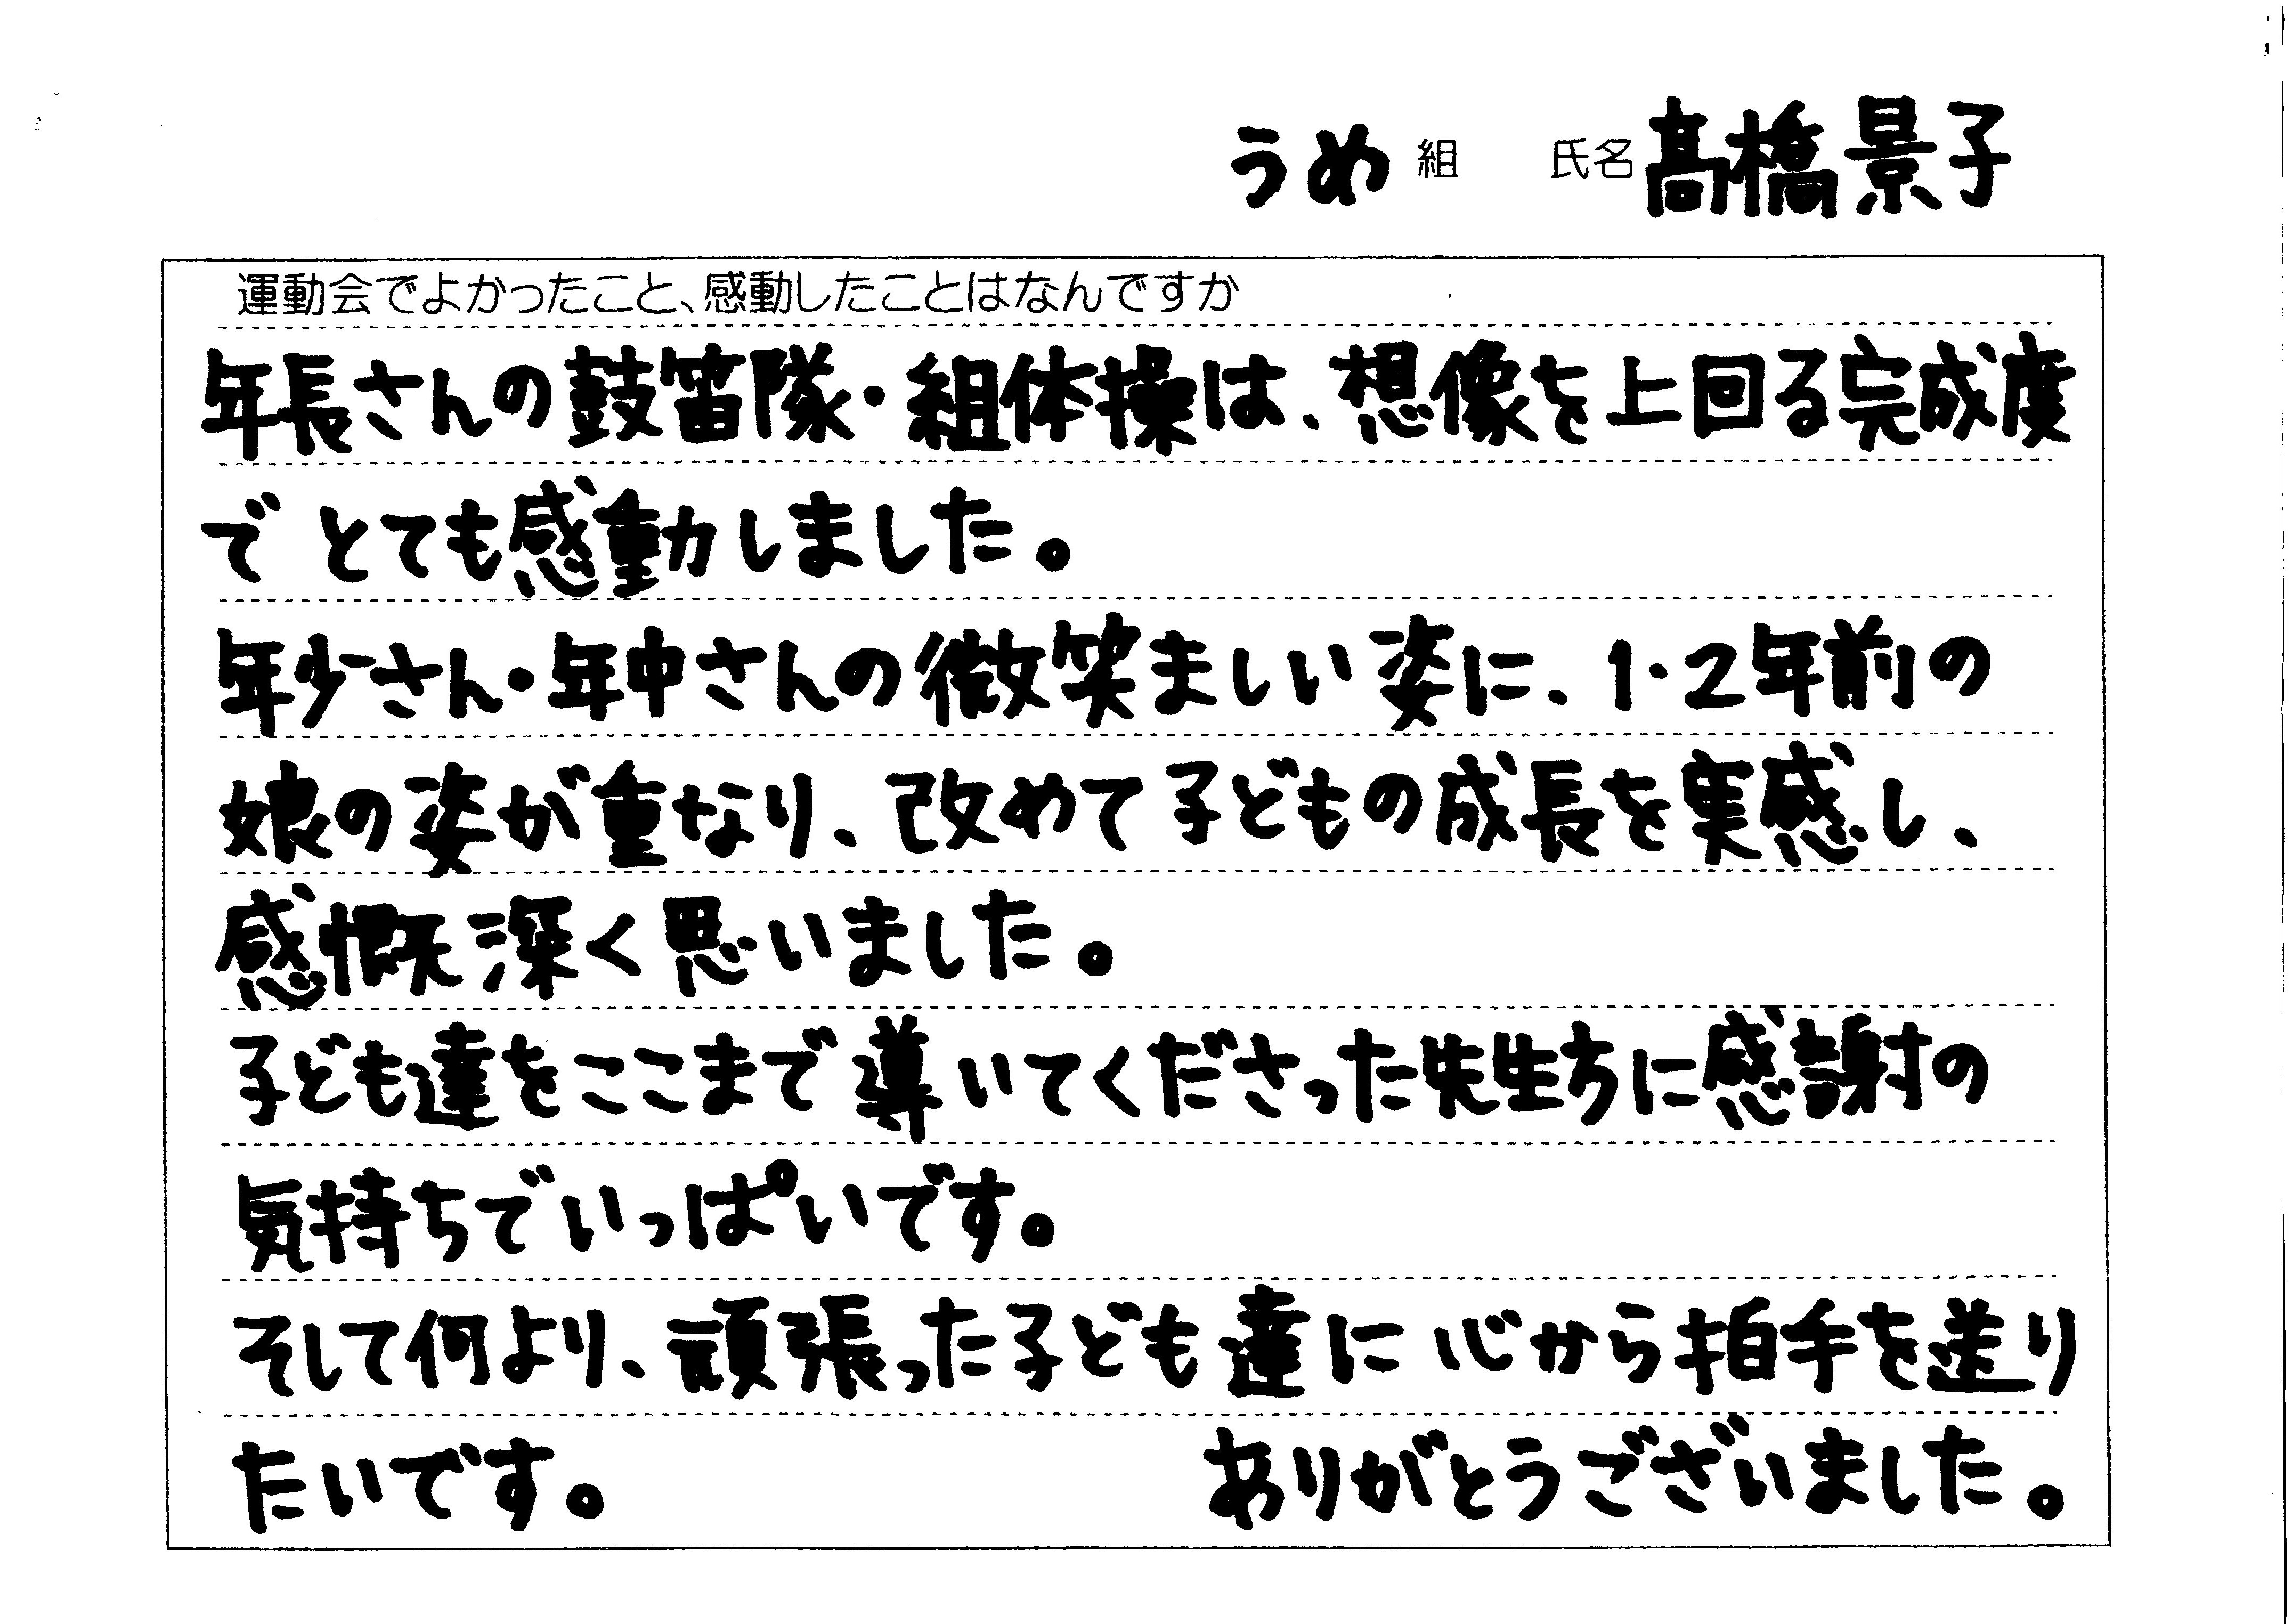 うめ組 氏名 髙橋景子
運動会でよかったこと、感動したことはなんですか
年長さんの鼓笛隊・組体操は、想像を上回る完成度
で とても感動しました。
年少さん・年中さんの微笑ましい姿に、1・2年前の
娘の姿が重なり、改めて子どもの成長を実感し、
感慨深く思いました。
子ども達をここまで導いてくださった先生方に感謝の
気持ちでいっぱいです。
そして何より、頑張った子ども達に心から拍手を送り
たいです。 ありがとうございました。